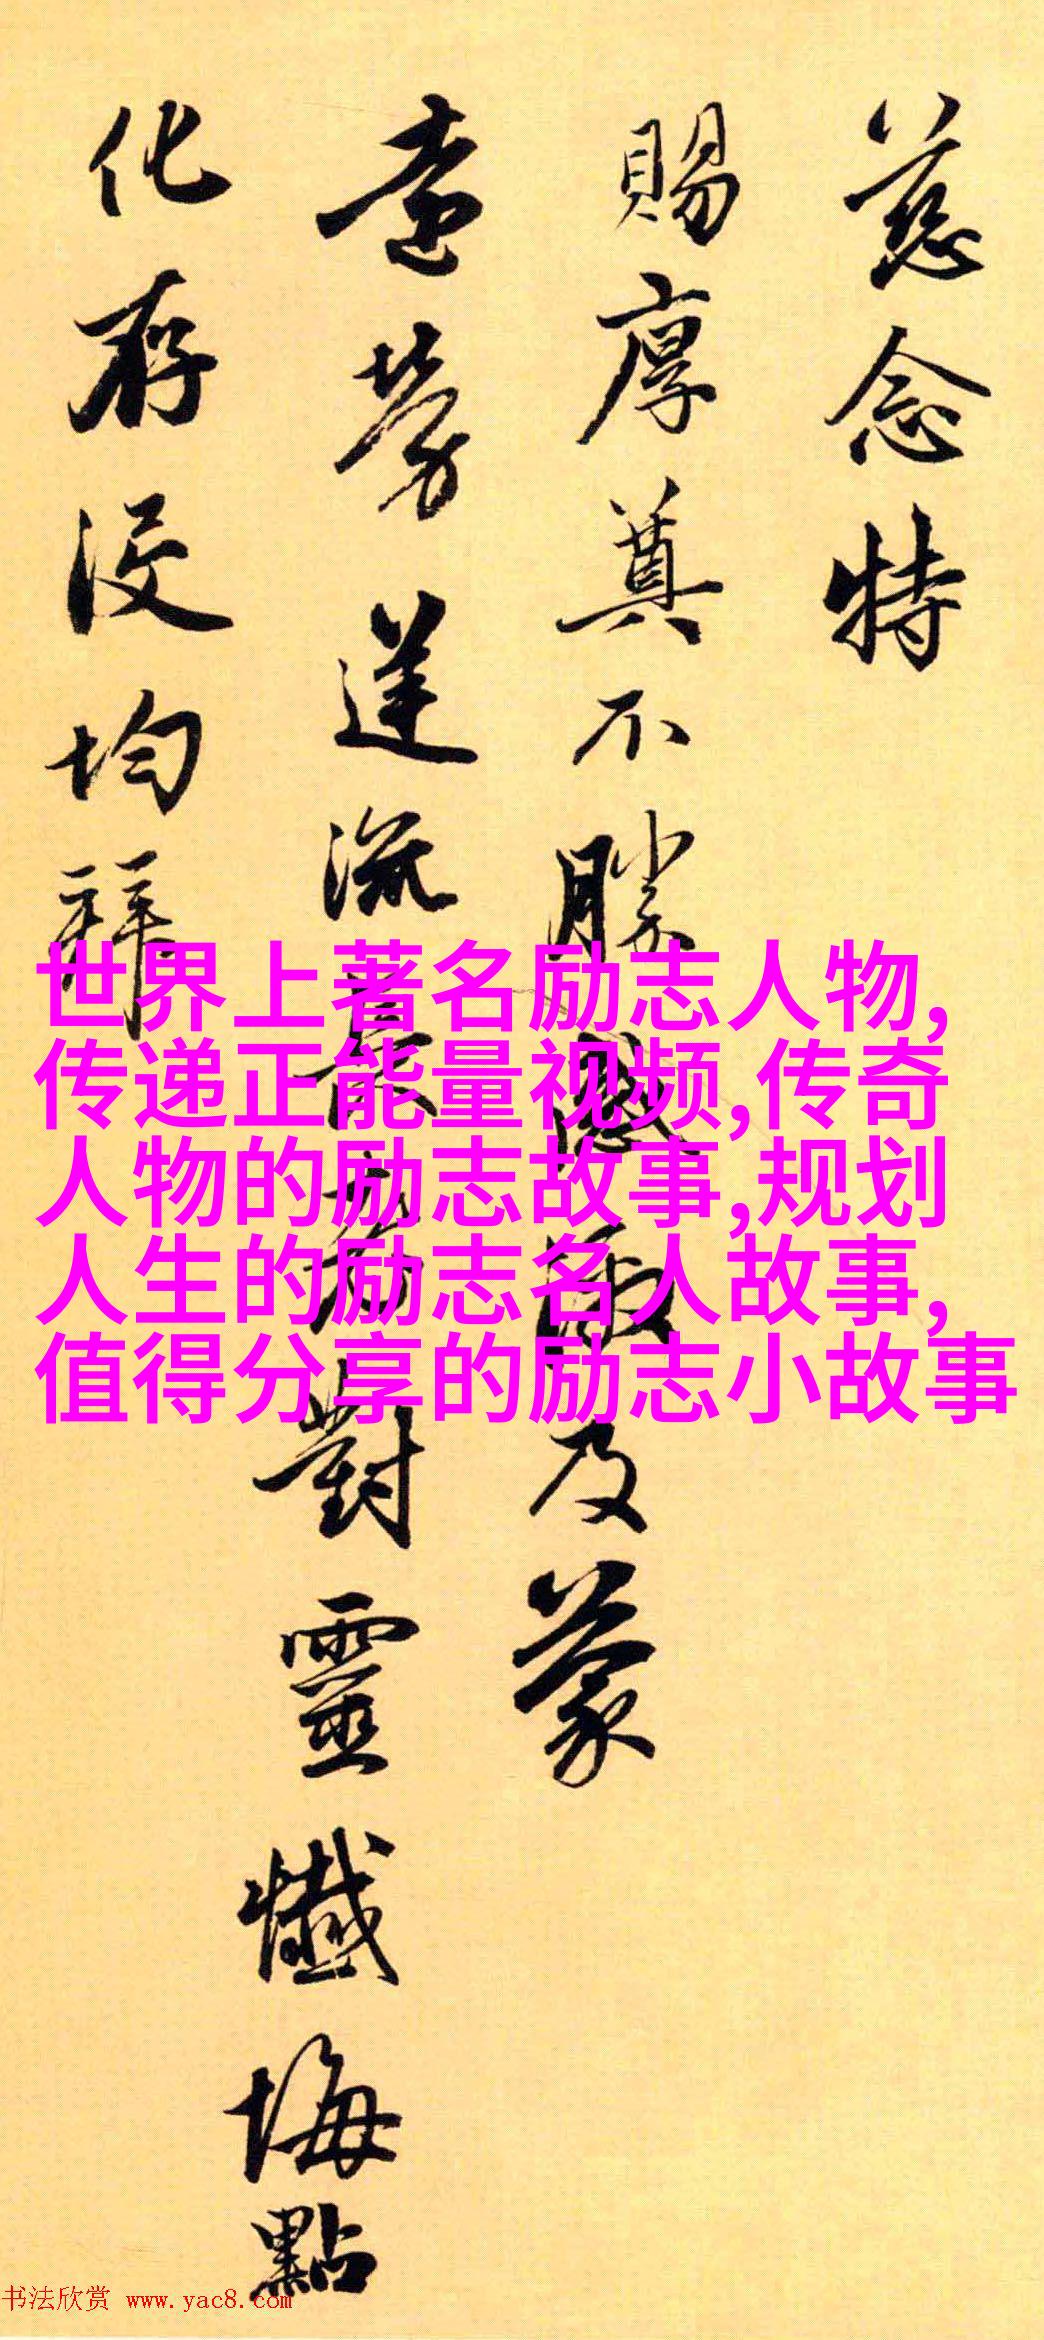 慈念特
賜厚奠不勝感激及蒙
遠勞蓮流對靈懺悔點
化存没均拜
世界上著名励志人物,
传递正能量视频,传奇
人物的励志故事,规划
人生的励志名人故事,
值得分享的励志小故事
书法欣赏 www.yac8.com